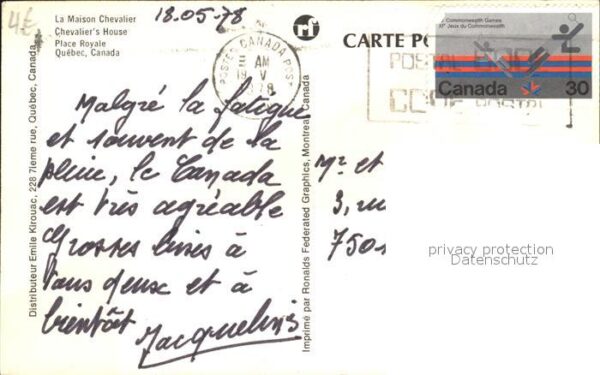 4€
La Maison Chevalier
Chevalier's House
Place Royale
Québec, Canada
18.05-78
rf
CARTE PO
POSTES CANADA POST
III AM
18 V
1978
Commonwealth Games
XIes Jeux du Commonwealth
Canada 30
POSTAL CODE
CODE POSTAL
Malgré la fatigue
et souvent de la
pluie, le Canada
est très agréable
Grosses bises à
tous deux et à
bientôt Jacqueline
Mr et
3, ru
750
privacy protection
Datenschutz
Distributeur Emile Kirouac, 228 7ieme rue, Québec, Canada
Imprimé par Ronalds Federated Graphics, Montreal, Canada